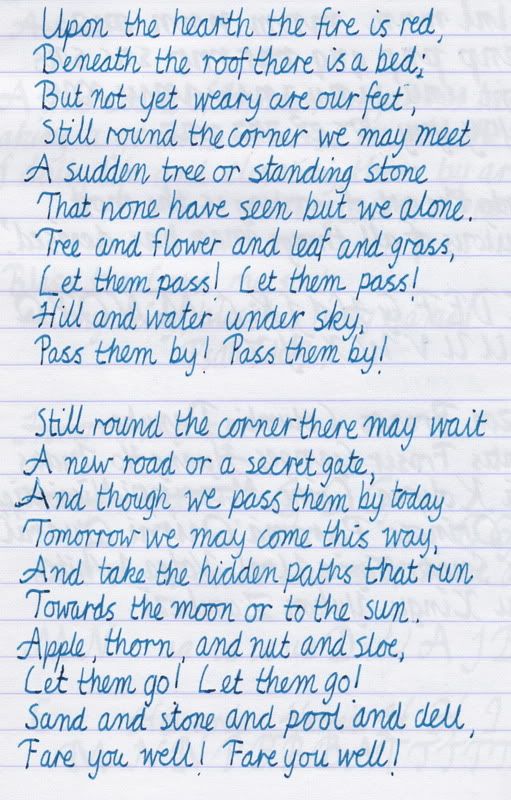 Upon the hearth the fire is red,
Beneath the roof there is a bed;
But not yet weary are our feet,
Still round the corner we may meet
A sudden tree or standing stone
That none have seen but we alone.
Tree and flower and leaf and grass,
Let them pass! Let them pass!
Hill and water under sky,
Pass them by! Pass them by!

Still round the corner there may wait
A new road or a secret gate,
And though we pass them by today
Tomorrow we may come this way,
And take the hidden paths that run
Towards the moon or to the sun.
Apple, thorn, and nut and sloe,
Let them go! Let them go!
Sand and stone and pool and dell,
Fare you well! Fare you well!